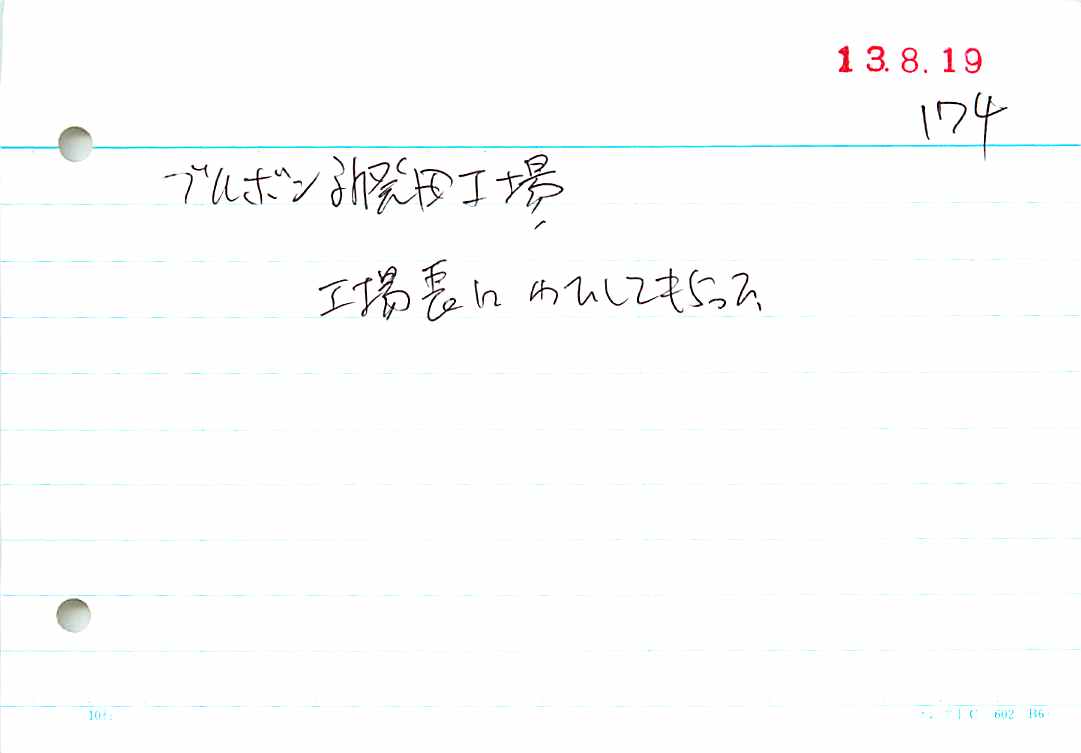 13.8.19
174
ブルボン新発田工場
工場長に してもらって
602 B6